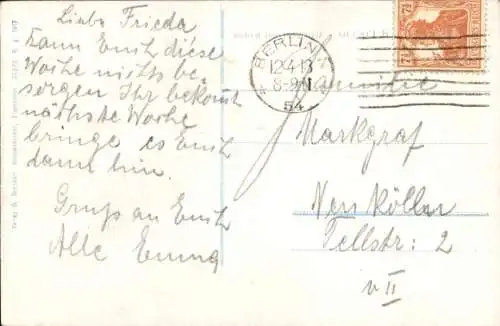 Liebe Frieda
kann Euch diese
Woche nichts be-
sorgen Ihr bekomt
nächste Woche
bringe es Euch
dann hin.
Gruß an Euch
Alle Emma
BERLIN
12.4.18
8-9 N
54
Familie
Markgraf
Neu Kölln
Tellstr: 2
v II
7½